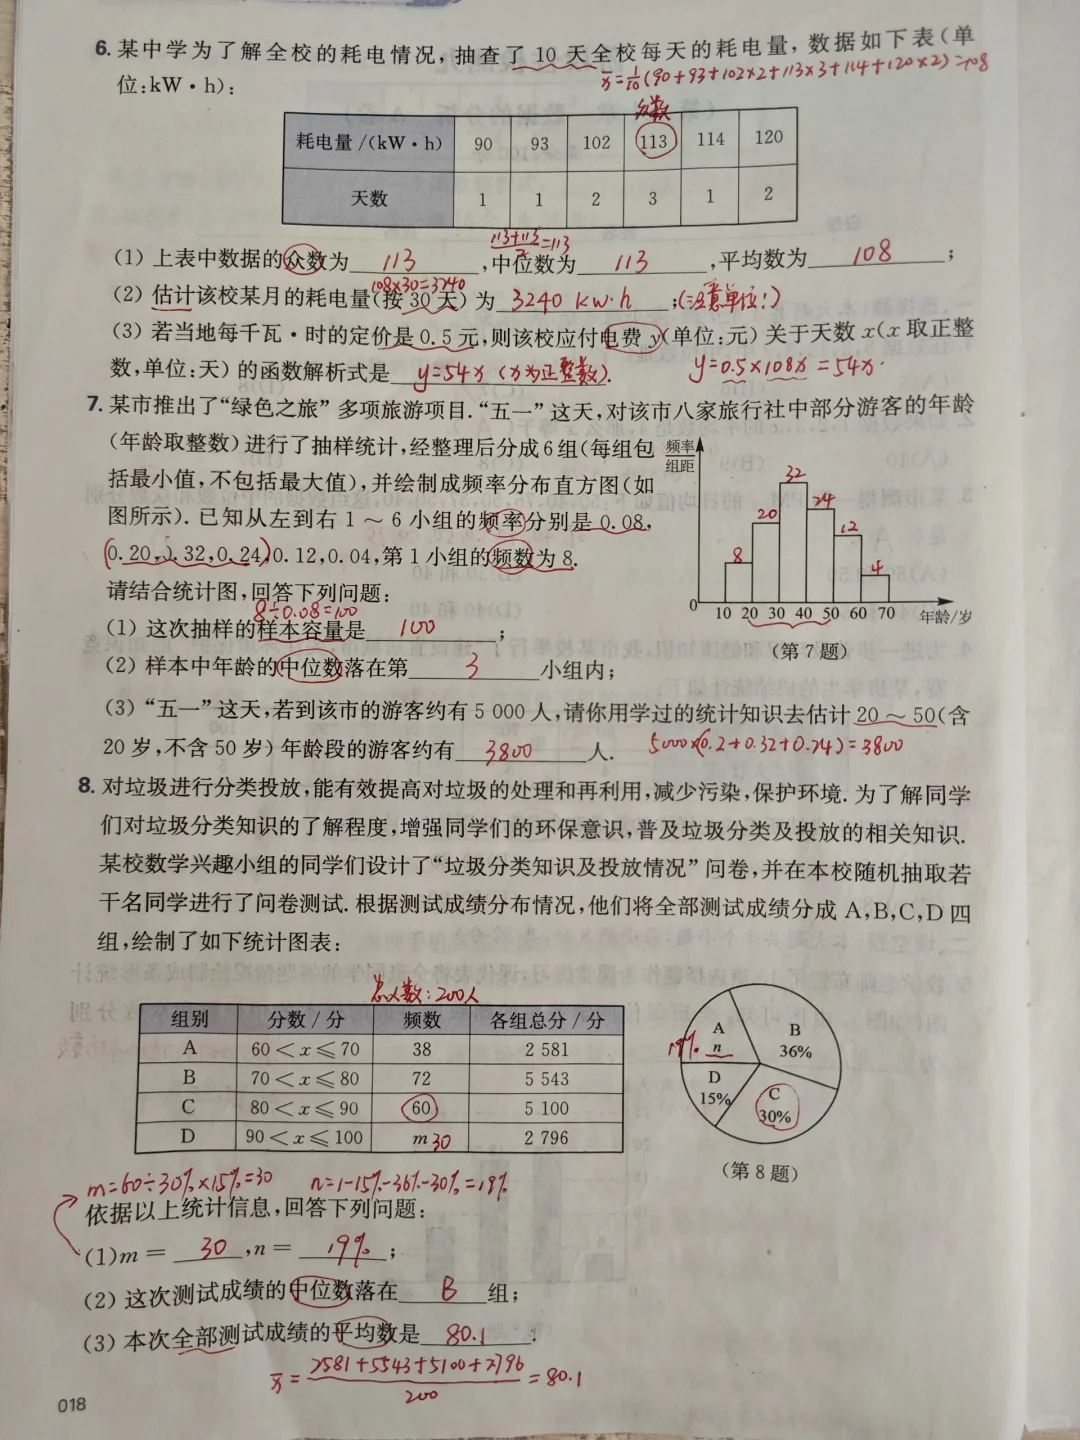 6. 某中学为了解全校的耗电情况,抽查了 10 天全校每天的耗电量,数据如下表(单
x̄=1/10(90+93+102×2+113×3+114+120×2)=108
位:kW·h):
众数
耗电量/(kW·h) 90 93 102 113 114 120
天数 1 1 2 3 1 2
(113+113)/2=113
(1) 上表中数据的众数为 113 ,中位数为 113 ,平均数为 108 ;
108×30=3240
(2) 估计该校某月的耗电量(按 30 天) 为 3240 kw·h ;(注意单位!)
(3) 若当地每千瓦·时的定价是 0.5 元,则该校应付电费 y(单位:元) 关于天数 x(x 取正整
数,单位:天) 的函数解析式是 y=54x (x为正整数). y=0.5×108x=54x.
7. 某市推出了“绿色之旅”多项旅游项目.“五一”这天,对该市八家旅行社中部分游客的年龄
(年龄取整数) 进行了抽样统计,经整理后分成 6 组(每组包
括最小值,不包括最大值),并绘制成频率分布直方图(如
图所示). 已知从左到右 1～6 小组的频率分别是 0.08,
0.20,0.32,0.24,0.12,0.04,第 1 小组的频数为 8.
请结合统计图,回答下列问题:
频率
组距
8 20 32 24 12 4
0 10 20 30 40 50 60 70 年龄/岁
(第 7 题)
8÷0.08=100
(1) 这次抽样的样本容量是 100 ;
(2) 样本中年龄的中位数落在第 3 小组内;
(3) “五一”这天,若到该市的游客约有 5 000 人,请你用学过的统计知识去估计 20～50(含
20 岁,不含 50 岁) 年龄段的游客约有 3800 人. 5000×(0.2+0.32+0.24)=3800
8. 对垃圾进行分类投放,能有效提高对垃圾的处理和再利用,减少污染,保护环境. 为了解同学
们对垃圾分类知识的了解程度,增强同学们的环保意识,普及垃圾分类及投放的相关知识.
某校数学兴趣小组的同学们设计了“垃圾分类知识及投放情况”问卷,并在本校随机抽取若
干名同学进行了问卷测试. 根据测试成绩分布情况,他们将全部测试成绩分成 A,B,C,D 四
组,绘制了如下统计图表:
总人数:200人
组别 分数/分 频数 各组总分/分
A 60<x≤70 38 2 581
B 70<x≤80 72 5 543
C 80<x≤90 60 5 100
D 90<x≤100 m 30 2 796
A
19% n
B
36%
D
15%
C
30%
(第 8 题)
m=60÷30%×15%=30 n=1-15%-36%-30%=19%
依据以上统计信息,回答下列问题:
(1) m= 30 ,n= 19% ;
(2) 这次测试成绩的中位数落在 B 组;
(3) 本次全部测试成绩的平均数是 80.1 .
x̄=(2581+5543+5100+2796)/200=80.1
018